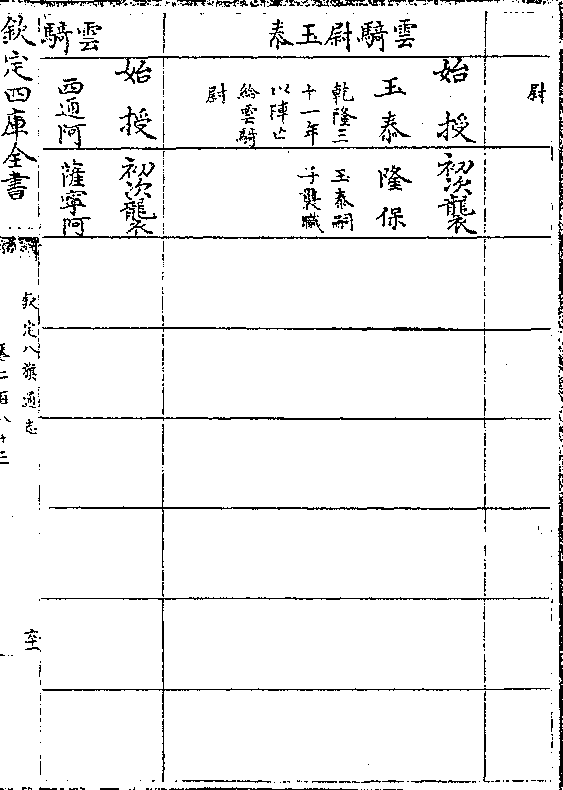 尉
雲騎尉玉泰
始授
初次襲
玉泰
隆保
乾隆三
十一年
以陣亡
給雲騎
尉
玉泰嗣
子襲職
雲騎
始授
初次襲
西通阿
薩寧阿
欽定四庫全書
欽定八旗通志
卷二百八十三